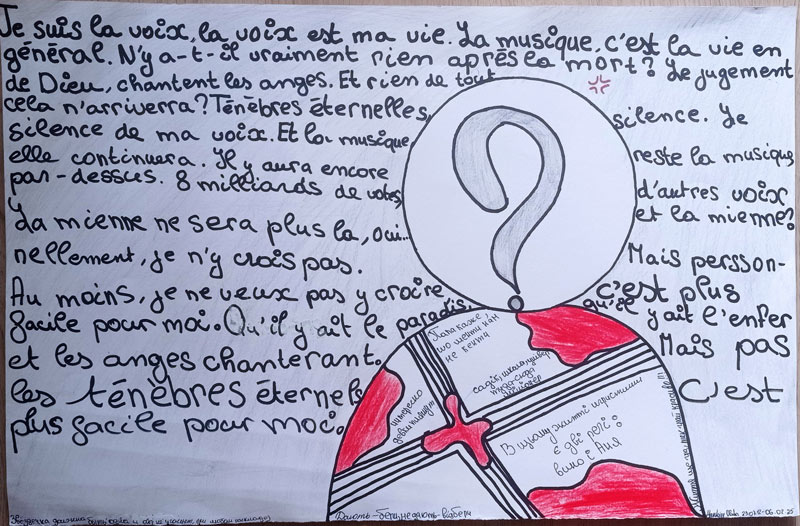 Je suis la voix, la voix est ma vie. La musique, c'est la vie en
général. N'y a-t-il vraiment rien après la mort? Le jugement
de Dieu, chantent les anges. Et rien de tout
cela n'arriverra? Ténèbres éternelles, silence. Je
silence de ma voix. Et la musique, reste la musique,
elle continuera. Il y aura encore d'autres voix
par-dessus. 8 milliards de votes, et la mienne?
La mienne ne sera plus la, oui... Mais persson-
nellement, je n'y crois pas.
Au moins, je ne veux pas y croire, c'est plus
facile pour moi. Qu'il y ait le paradis, qu'il y ait l'enfer
et les anges chanterant. Mais pas
les ténèbres éternels C'est
plus facile pour moi.
Папа каже,
шо менти нам
не кенти
садік, школа, універ
інтересно
В цьому житті ігристиму
є дві речі:
вино і Аня
Дають - бери, не дають - відбери